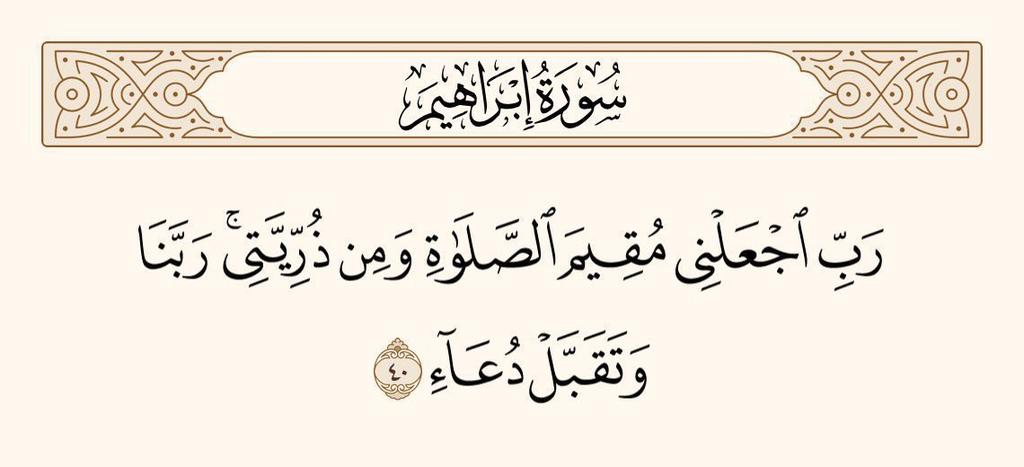 سُورَةُ إِبْرَاهِيمَ
رَبِّ ٱجْعَلْنِى مُقِيمَ ٱلصَّلَوٰةِ وَمِن ذُرِّيَّتِى ۚ رَبَّنَا
وَتَقَبَّلْ دُعَآءِ ٤٠